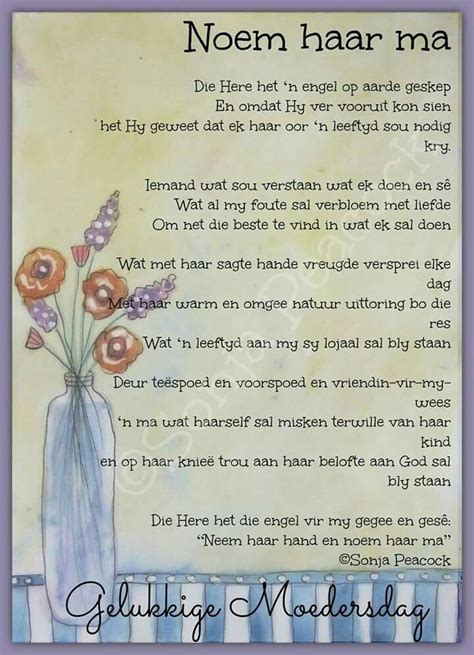 Noem haar ma
Die Here het 'n engel op aarde geskep
En omdat Hy ver vooruit kon sien
het Hy geweet dat ek haar oor 'n leeftyd sou nodig
kry.
Iemand wat sou verstaan wat ek doen en sê
Wat al my foute sal verbloem met liefde
Om net die beste te vind in wat ek sal doen
Wat met haar sagte hande vreugde versprei elke
dag
Met haar warm en omgee natuur uittoring bo die
res
Wat 'n leeftyd aan my sy lojaal sal bly staan
Deur teëspoed en voorspoed en vriendin-vir-my-
wees
'n ma wat haarself sal misken terwille van haar
kind
en op haar knieë trou aan haar belofte aan God sal
bly staan
Die Here het die engel vir my gegee en gesê:
"Neem haar hand en noem haar ma"
©Sonja Peacock
Gelukkige Moedersdag
©Sonja Peacock